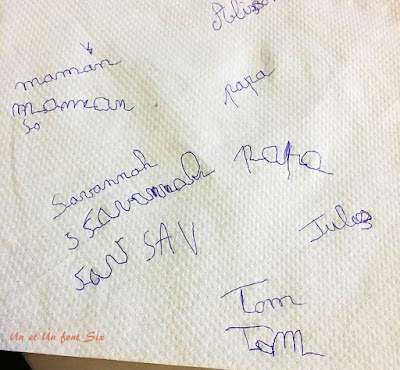 maman
maman
So
papa
Savannah
S Savannah
SAV SAV
papa
Jules
Tom
Tom
Un et Un font Six